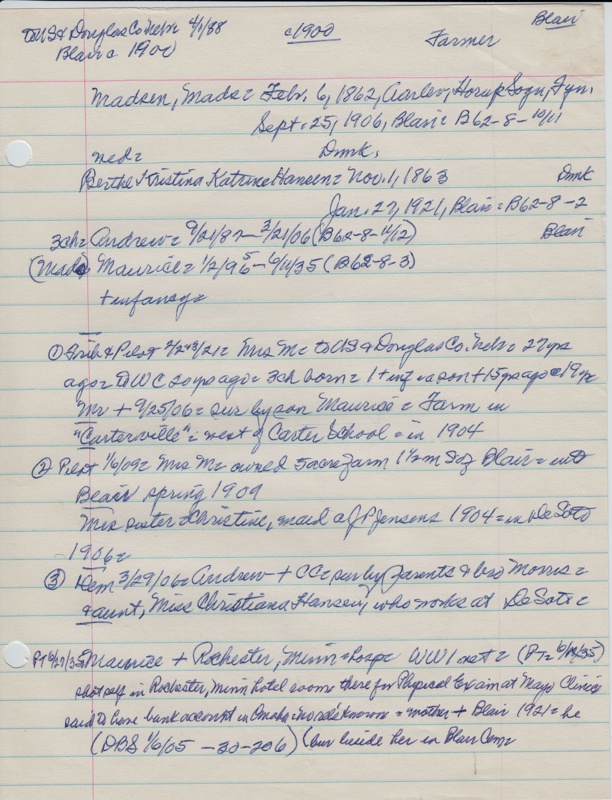 to US & Douglas Co. Nebr 4/1/88 c1900 Blair
Blair c 1900 Farmer
Madsen, Mads = Febr. 6, 1862, Aarlev, Horup Sogn, Fyn,
Sept. 25, 1906, Blair = B62-8-10/11
med = Dmk,
Berthe Kristina Katrine Hansen = Nov. 1, 1863 Dmk
Jan. 27, 1921, Blair = B62-8-2
3ch = Andrew = 9/21/87 - 3/21/06 (B62-8-10/12) Blair
(Mads) Maurice = 1/2/95 - 6/11/35 (B62-8-3)
+ infancy =
① Trib & Pilot 2/2 + 3/21 = Mrs M = to US & Douglas Co. Nebr = 27 yrs
ago = to WC 20 yrs ago = 3ch born = 1 + inf = a son + 15 yrs ago @ 19 yrs
Mr + 9/25/06 = sur by son Maurice = Farm in
"Carterville" = west of Carter School = in 1904
② Pilot 1/6/09 = Mrs M = owned 5 acre farm 1 1/2 m S of Blair = into
Blair spring 1909
Mrs sister = Christine, maid a J P Jensens 1904 = in De Soto
1906 =
③ Dem 3/29/06 = Andrew + CC = sur by parents & bro Morris =
& aunt, Miss Christiana Hansen, who works at De Soto =
PT 6/27/35 Maurice + Rochester, Minn = hosp = WW1 vet = (PT = 6/14/35)
shot self in Rochester, Minn hotel room = there for Physical Exam at Mayo Clinic
said to have bank account in Omaha = no rels known = mother + Blair 1921 = he
(DBS 1/6/05 - 30-206) (bur beside her in Blair Cem =